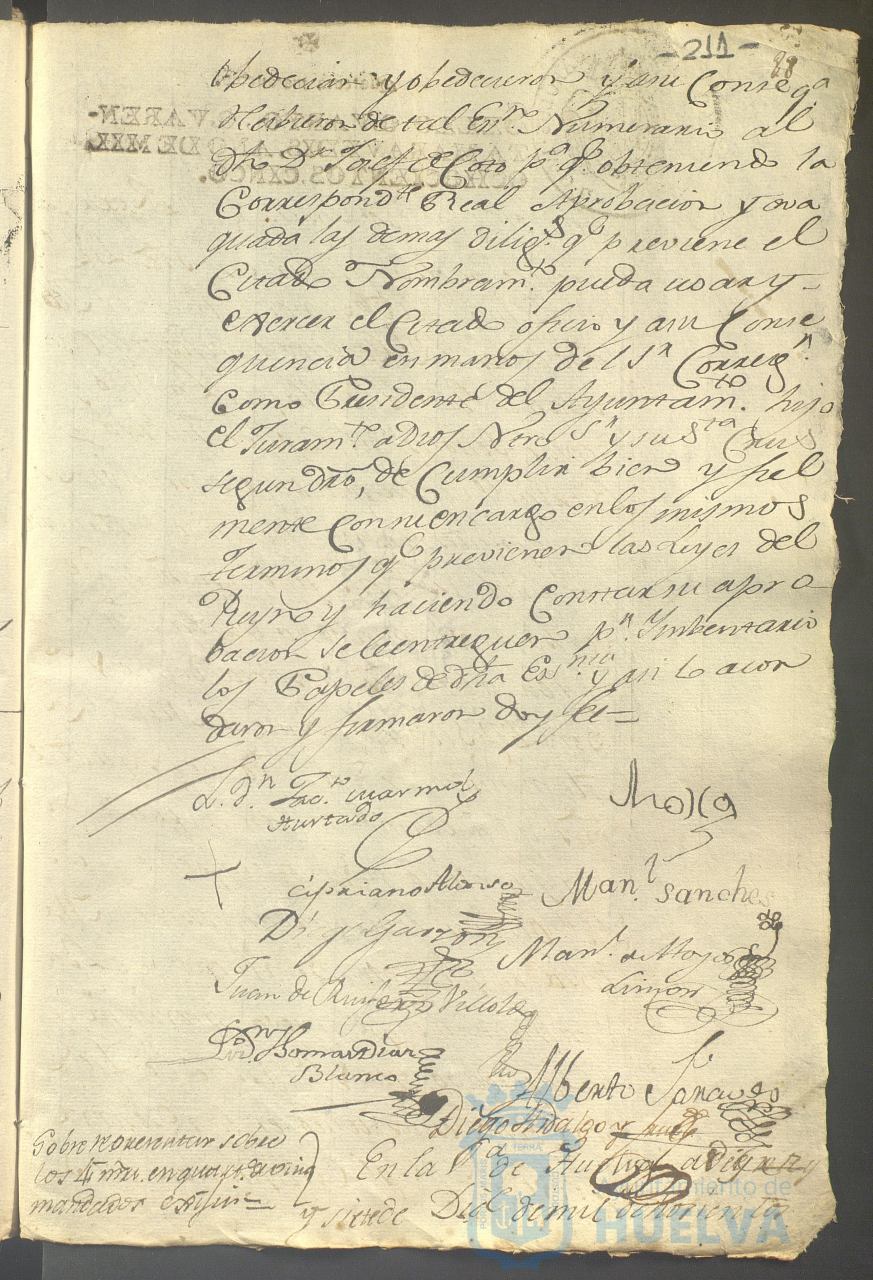 -211-
28
Obedecian y obedecieron y asu Conseqa
Hubieron de tal Esno Numerario al
Dho Dn Josef de Coto pa qe obteniendo la
Correspondte Real Aprobacion y eva
quada las demas diligs qe previene el
Citado Nombramto pueda usar y
exercer el Citado oficio y asu Conse
quencia en manos del Sr Corregr
como Presidente del Ayuntamto hizo
el Juramto a Dios Nero Sr y su Sta Cruz
segun dro, de Cumplir bien y fiel
mente Con su encargo en los mismos
Terminos qe previenen las Leyes del
Reyno y haciendo Constar su apro
bacion se le entreguen pr Imbentario
los Papeles de dha Esnia y asi lo acor
daron y firmaron doy fe=
L. dn Jacto Marmol
Hurtado
Cipriano Alonso
Manl Sanches
Diego Garzon
Manl de Moya
Limon
Juan de Villoldo
Thomas Diaz
Blanco
Alberto
Diego Hidalgo y
Sobre representar sobre
los 4 mrs. en quarta de vino
mandados
En la Va de Huelva a
y siete de Dice de mil ochocientos
Ayuntamiento de
HUELVA